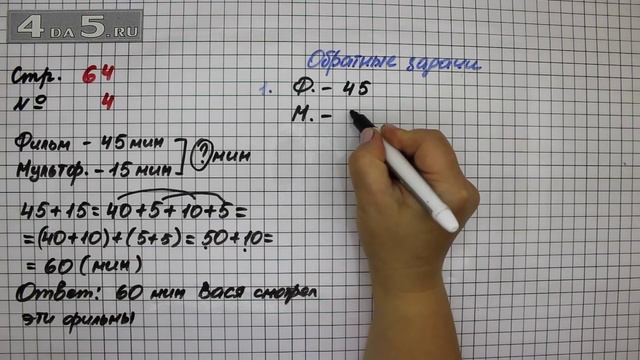 4 ДА 5.RU
Стр. 64
№ 4
Фильм - 45 мин
Мультф. - 15 мин
? мин
45+15=40+5+10+5=
=(40+10)+(5+5)=50+10=
=60 (мин)
Ответ: 60 мин Вася смотрел
эти фильмы
Обратные задачи
1. Ф. - 45
М. -